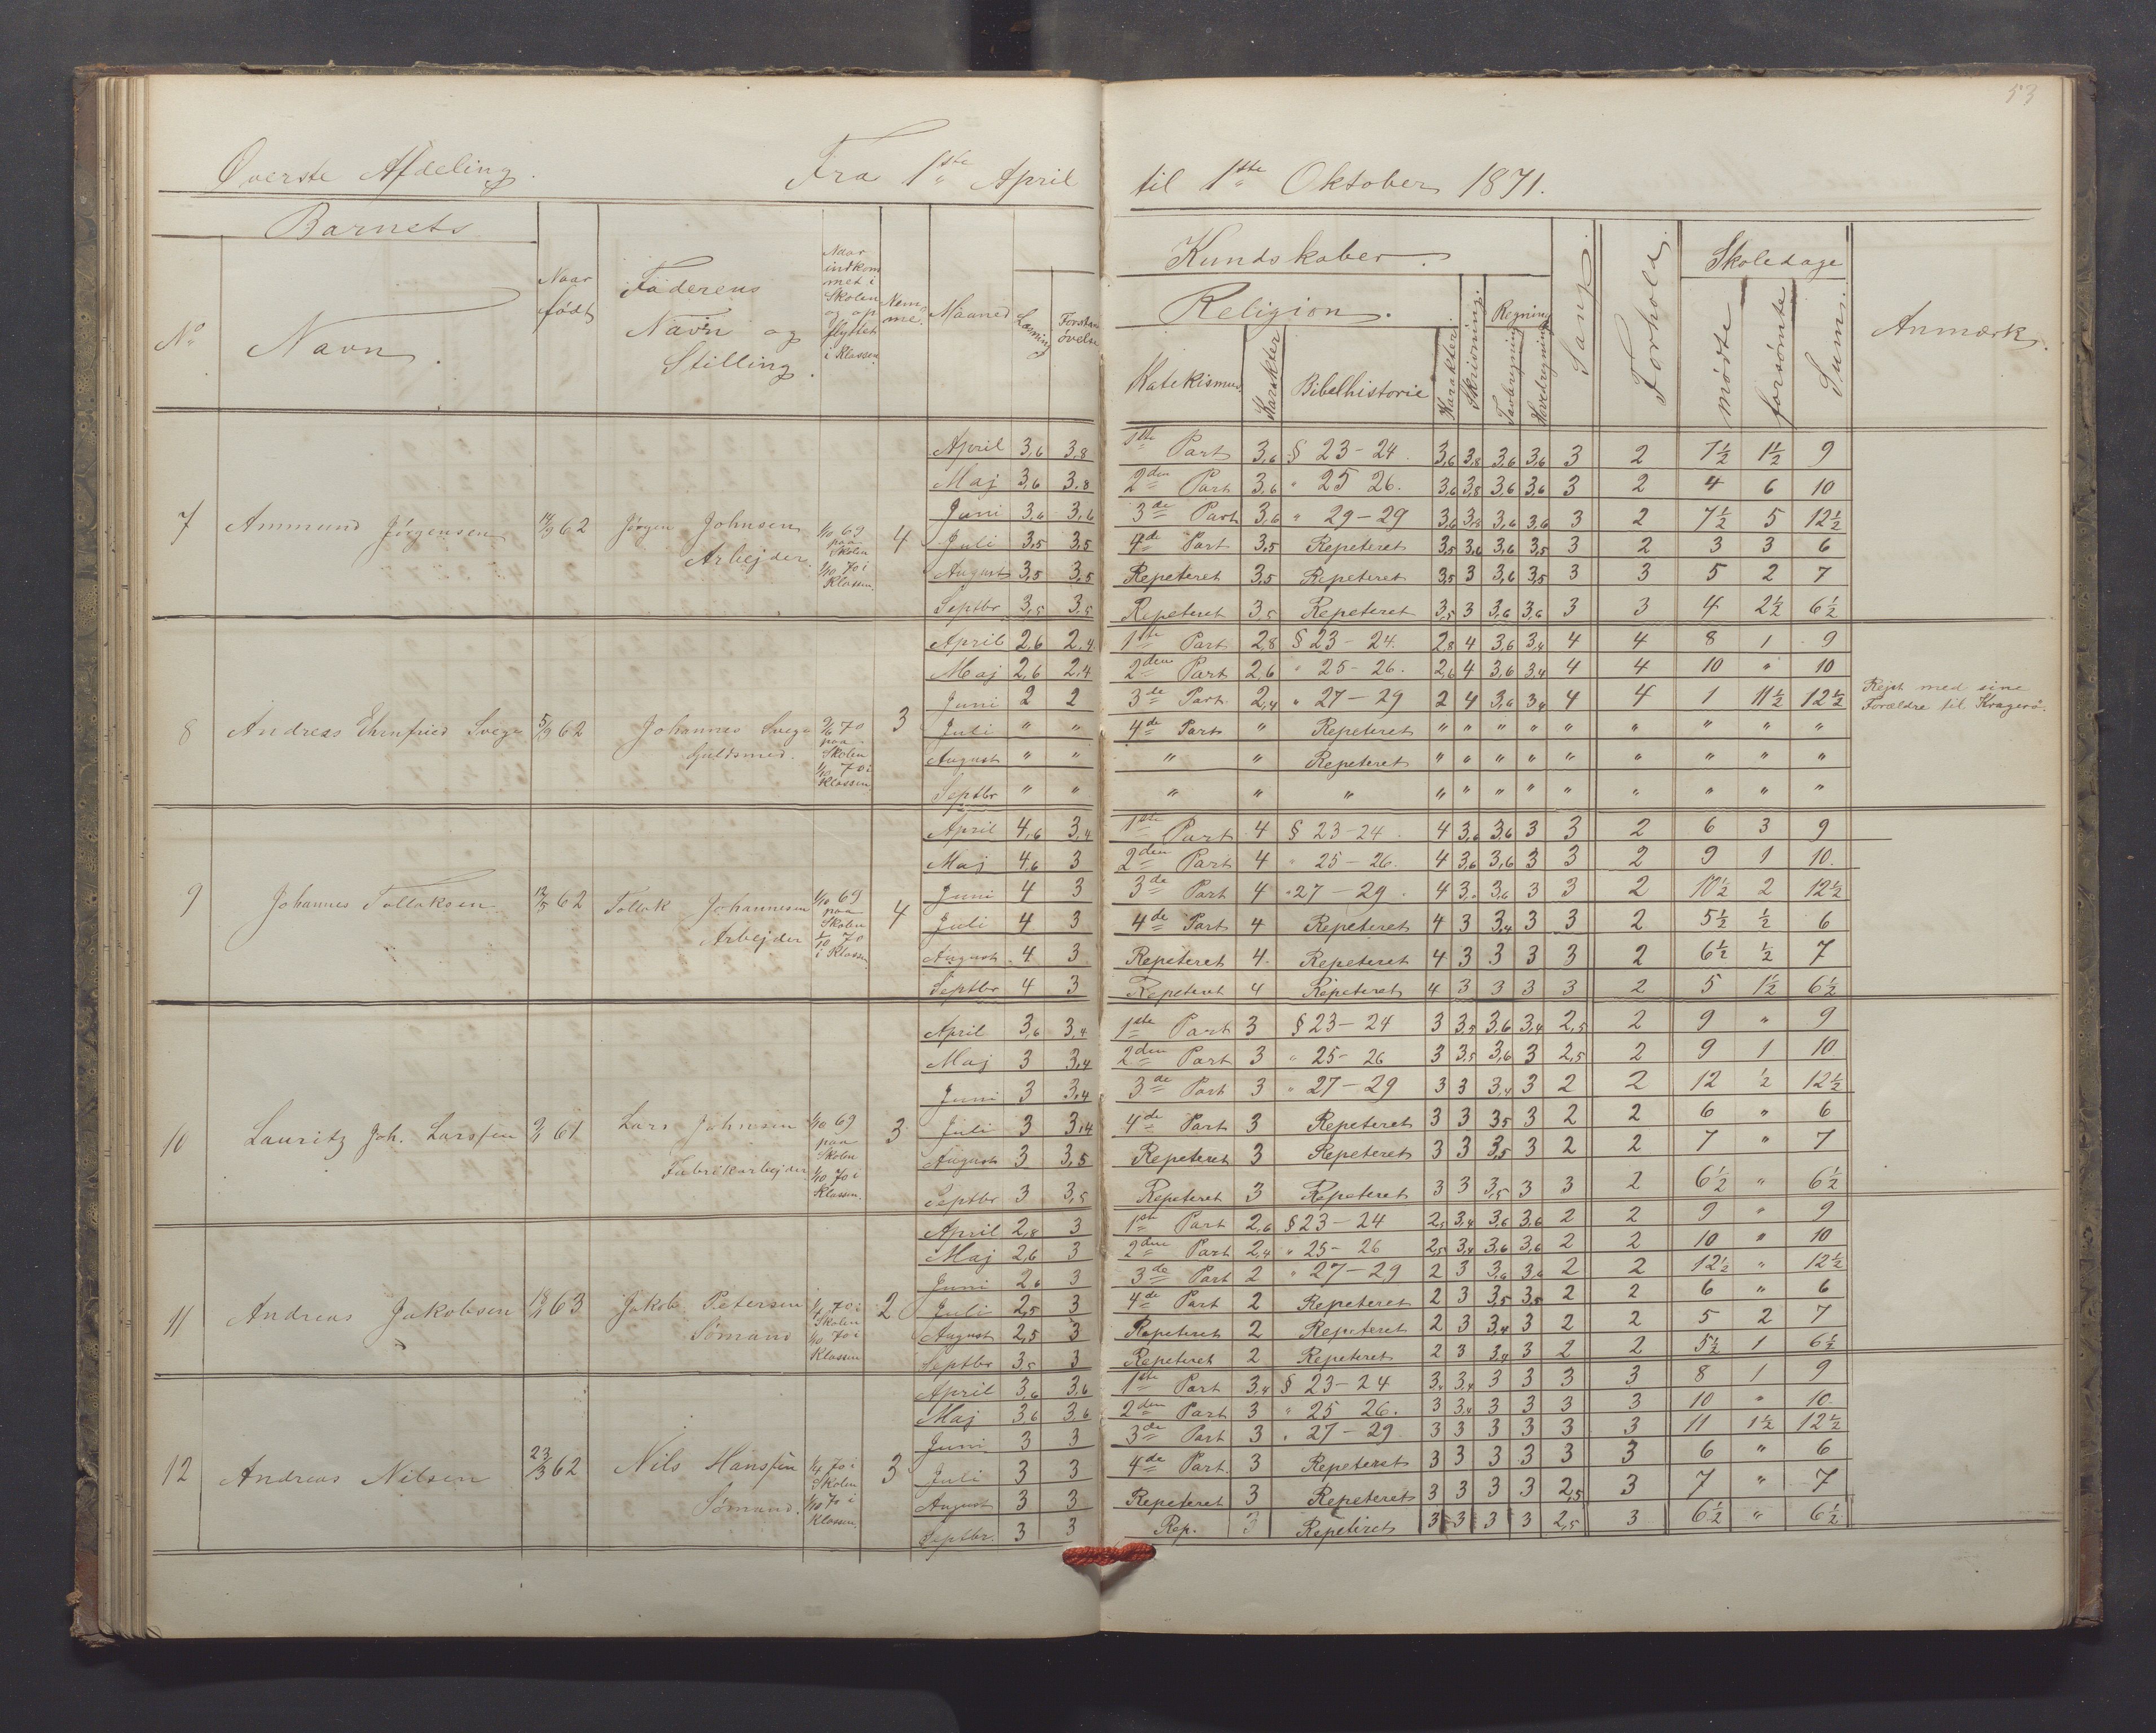 53
Øverste Afdeling. Fra 1ste April til 1ste Oktober 1871.
Barnets
No Navn. Naar født Faderens Navn og Stilling. Naar indkommet i Skolen og opflyttet i Klassen Nemme. Maaned Læsning Forstandsøveln Kundskaber. Religion. Katekismus. Karakter Bibelhistorie Karakter. Skrivning. Regning Tavleregning Hovedregning Sang. Forhold. Skoledage mødte forsømte Sum. Anmærk.
April 3,6 3,8 1ste Part 3,6 § 23-24. 3,6 3,8 3,6 3,6 3 2 7½ 1½ 9
Maj 3,6 3,8 2den Part 3,6 " 25 26. 3,6 3,8 3,6 3,6 3 2 4 6 10
Juni 3,6 3,6 3de Part 3,6 " 29-29 3,6 3,6 3,6 3 2 7½ 5 12½
7 Ammund Jørgensen 14/9 62 Jørgen Johnsen Arbejder. 1/10 69 paa Skolen 1/10 70 i Klassen. 4 Juli 3,5 3,5 4de Part 3,5 Repeteret 3,5 3,6 3,6 3,5 3 2 3 3 6
August 3,5 3,5 Repeteret 3,5 Repeteret 3,5 3 3,6 3,5 3 3 5 2 7
Septbr 3,5 3,5 Repeteret 3,5 Repeteret 3,5 3 3,6 3,6 3 3 4 2½ 6½
April 2,6 2,4 1ste Part 2,8 § 23-24. 2,8 4 3,6 3,4 4 4 8 1 9
Maj 2,6 2,4 2den Part 2,6 " 25-26. 2,6 4 3,6 3,4 4 4 10 " 10
Juni 2 2 3de Part 2,4 " 27-29 2 4 3,6 3,4 4 4 1 11½ 12½ Rejst med sine Forældre til Kragerø.
8 Andreas Ehrnfried Svege 5/9 62 Johannes Svege Guldsmed. 70 paa Skolen 1/10 70 i Klassen. 3 Juli " " 4de Part " Repeteret " " " " " " " " "
August " " " " Repeteret " " " " " " " " "
Septbr " " " " " " " " " " " " " "
April 4,6 3,4 1ste Part 4 § 23-24. 4 3,6 3,6 3 3 2 6 3 9
Maj 4,6 3 2den Part 4 " 25-26. 4 3,6 3,6 3 3 2 9 1 10.
Juni 4 3 3de Part 4 " 27-29. 4 3,6 3 3 2 10½ 2 12½
9 Johannes Tollaksen 62 Tollak Johannesen Arbejder 1/10 69 paa Skolen 1/10 70 i Klassen. 4 Juli 4 3 4de Part 4 Repeteret 4 3 3,4 3 3 2 5½ ½ 6
August 4 3 Repeteret 4. Repeteret 4 3 3 3 3 2 6½ ½ 7
Septbr 4 3 Repeteret 4 Repeteret 4 3 3 3 3 2 5 1½ 6½
April 3,6 3,4 1ste Part 3 § 23-24 3 3,5 3,6 3,4 2,5 2 9 " 9
Maj 3 3,4 2den Part 3 " 25-26 3 3,5 3,6 3 2,5 2 9 1 10
Juni 3 3,4 3de Part 3 " 27-29 3 3 3,4 3 2 2 12 ½ 12½
10 Lauritz Joh. Larssen 61 Lars Johnsen Fabrikarbejder 1/10 69 paa Skolen 1/10 70 i Klassen. 3 Juli 3 3,4 4de Part 3 Repeteret 3 3 3,5 3 2 2 6 " 6
August 3 3,5 Repeteret 3 Repeteret 3 3 3,5 3 2 2 7 " 7
Septbr 3 3,5 Repeteret 3 Repeteret 3 3 3,5 3 3 2 6½ " 6½
April 2,8 3 1ste Part 2,6 § 23-24 2,5 3,4 3,6 3,6 2 2 9 " 9
Maj 2,6 3 2den Part 2,4 " 25-26 2,5 3,4 3,6 3,6 2 2 10 " 10
Juni 2,6 3 3de Part 2 " 27-29 2 3 3,6 3,6 2 2 12½ " 12½
11 Andreas Jakobsen 63 Jakob Petersen Sømand 1/4 70 i Skolen 1/10 70 i Klassen 2 Juli 2,5 3 4de Part 2 Repeteret 2 3 3,5 3,5 2 2 6 " 6
August 2,5 3 Repeteret 2 Repeteret 2 3 3,4 3 2 2 5 2 7
Septbr 3,5 3 Repeteret 2 Repeteret 2 3 3,4 3 2 2 5½ 1 6½
April 3,6 3,6 1ste Part 3,4 § 23-24 3,4 3,4 3 3 3 3 8 1 9
Maj 3,6 3,6 2den Part 3 " 25 26. 3 3,4 3 3 3 3 10 " 10.
Juni 3 3 3de Part 3 " 27-29 3 3 3 3 3 3 11 1½ 12½
12 Andreas Nilsen 23/3 62 Nils Hanssen Sømand. 1/4 70 i Skolen 1/10 70 i Klassen. 3 Juli 3 3 4de Part. 3 Repeteret 3 3 3 3 3 3 6 " 6
August 3 3 Repeteret 3 Repeteret 3 3 3 3 2,5 3 7 " 7
Septbr. 3 3 Rep. 3 Repeteret 3 3 3 3 2,5 3 6½ " 6½